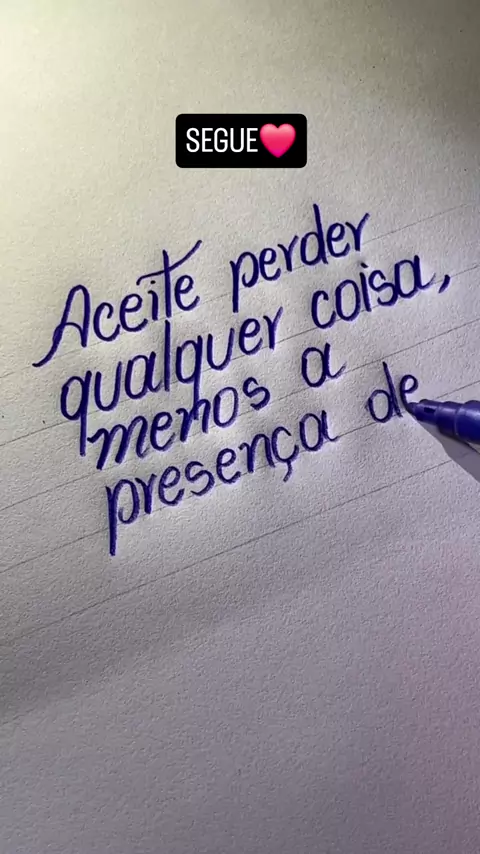 SEGUE🩷
Aceite perder
qualquer coisa,
menos a
presença de